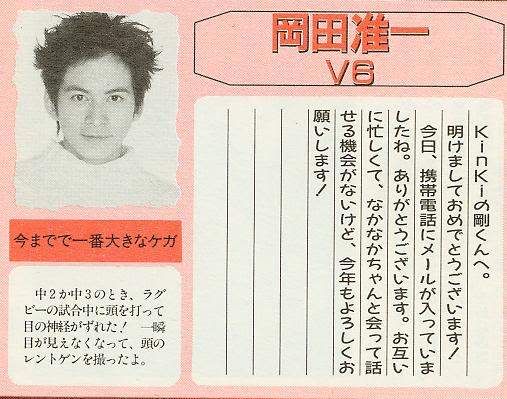 岡田准一
V6
KinKiの剛くんへ。
明けましておめでとうございます！
今日、携帯電話にメールが入っていま
したね。ありがとうございます。お互い
に忙しくて、なかなかちゃんと会って話
せる機会がないけど、今年もよろしくお
願いします！
今までで一番大きなケガ
中2か中3のとき、ラグ
ビーの試合中に頭を打って
目の神経がずれた！　一瞬
目が見えなくなって、頭の
レントゲンを撮ったよ。